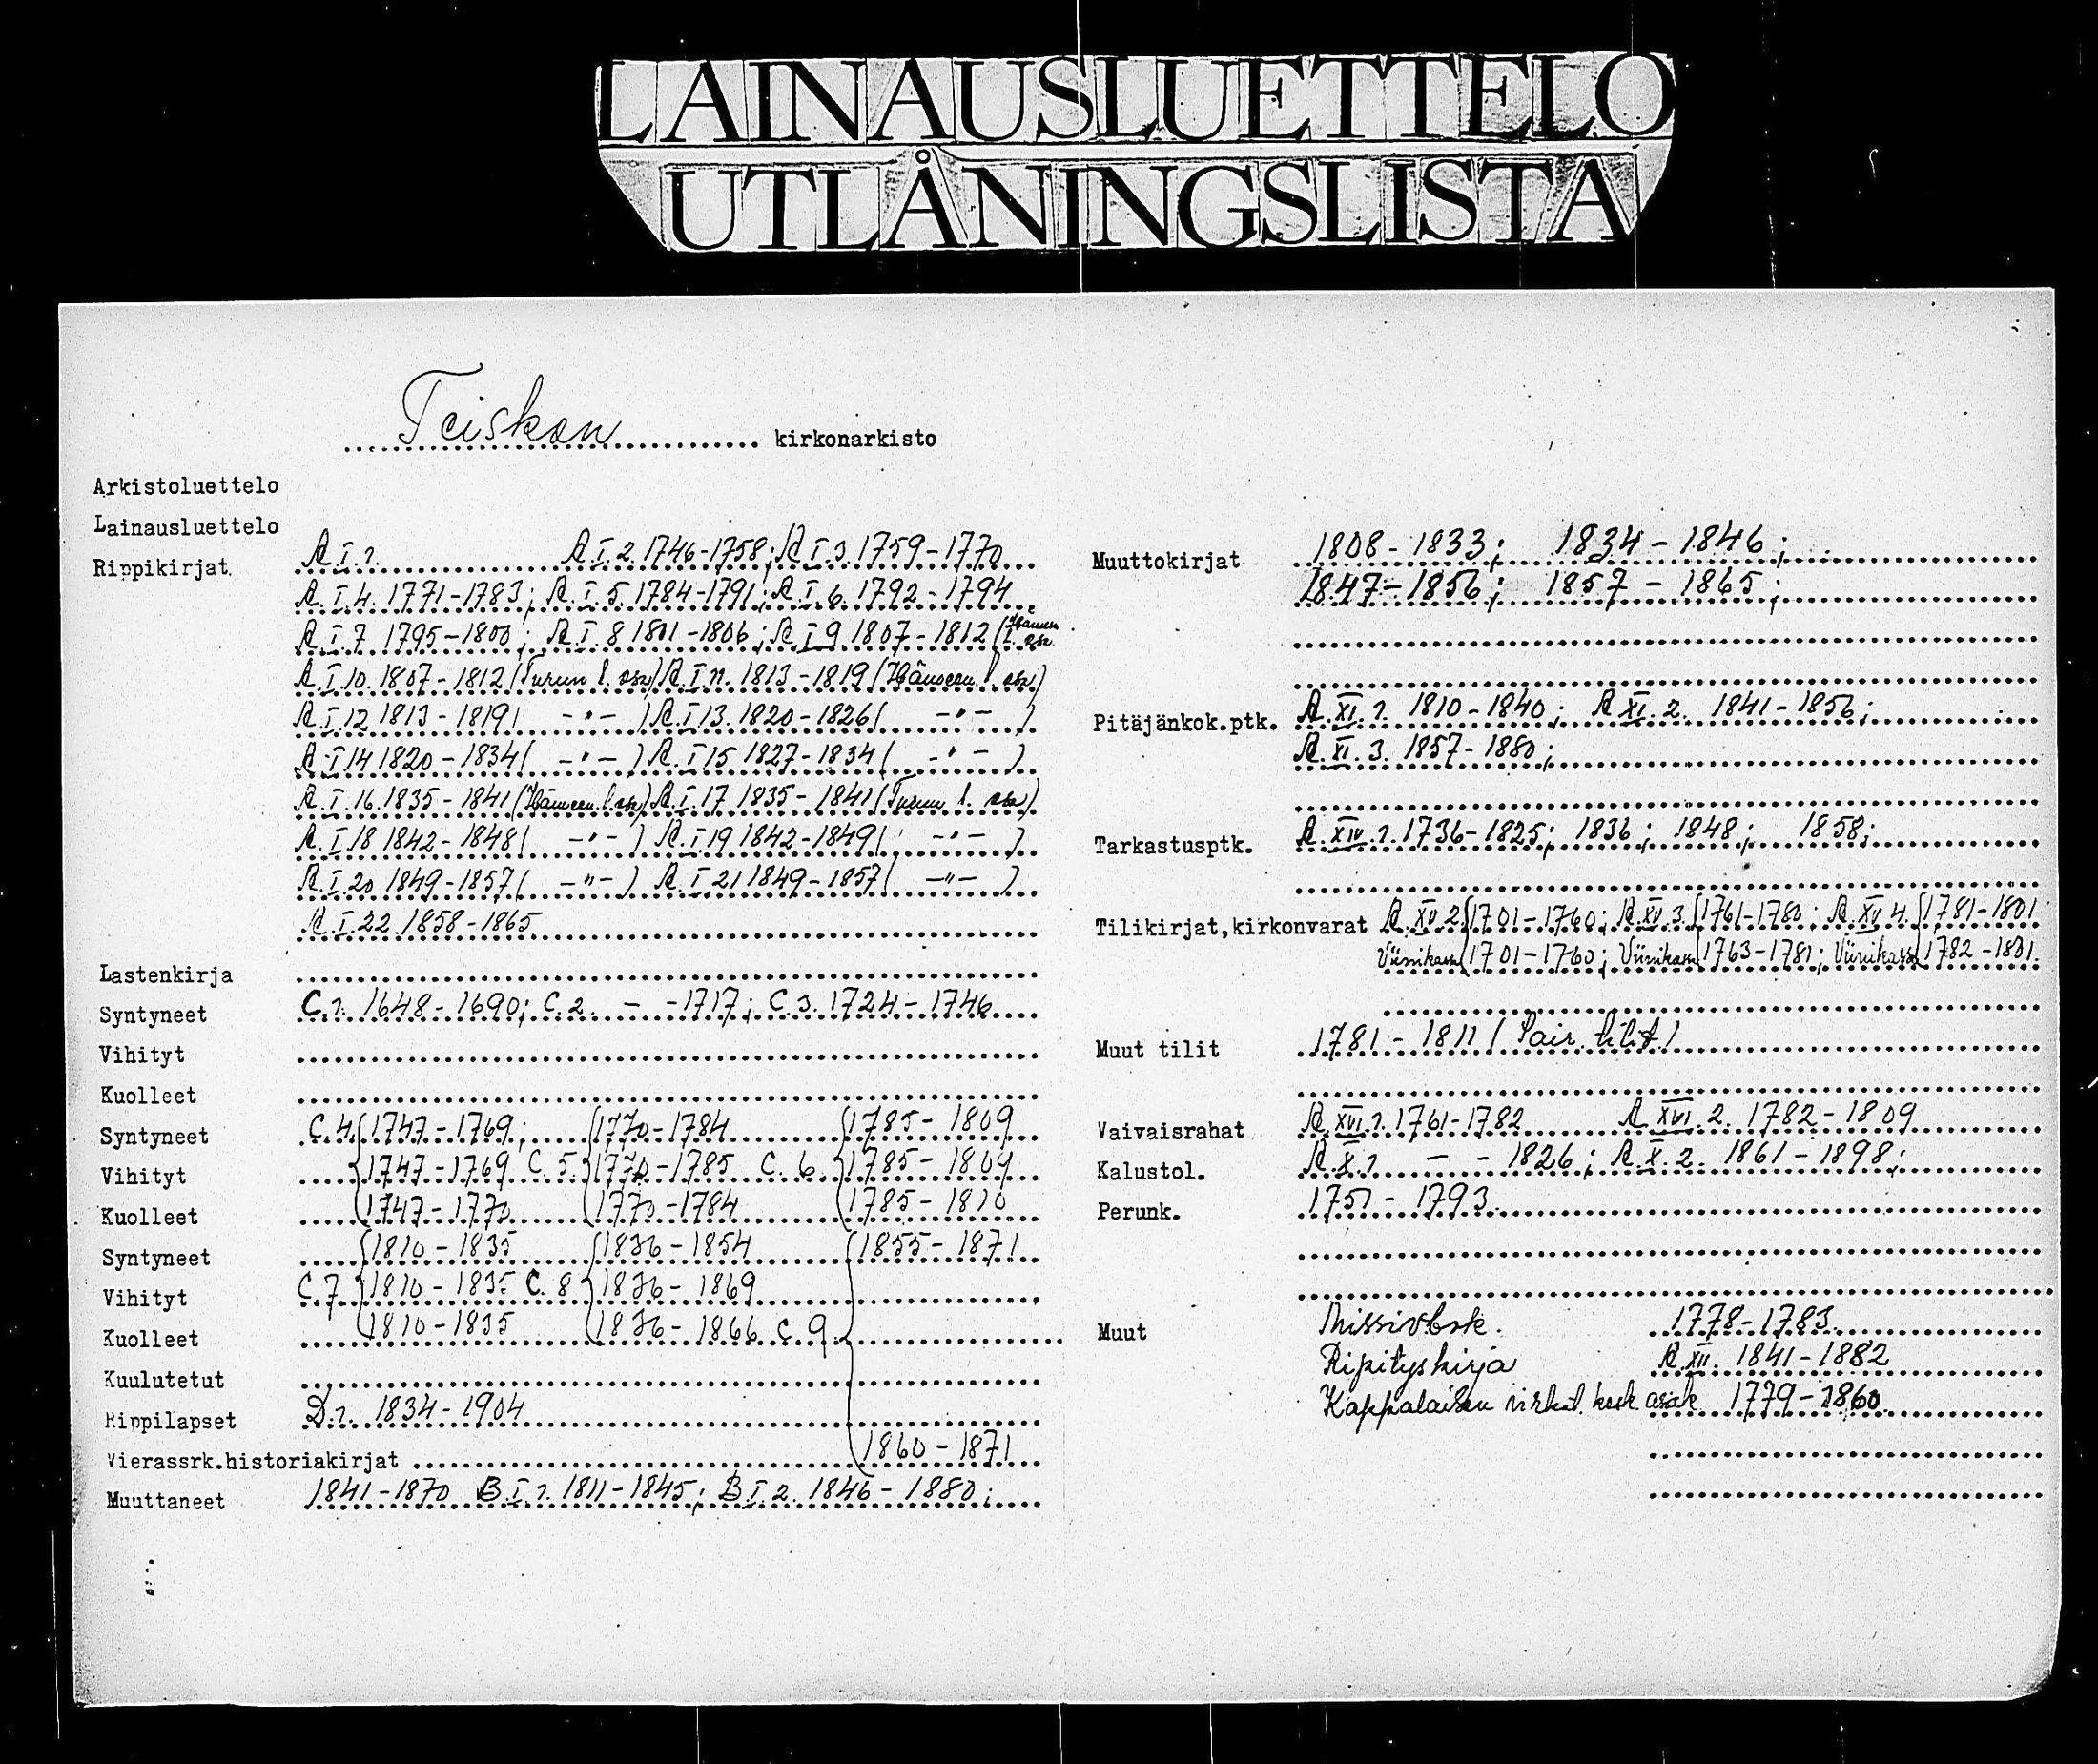 LAINAUSLUETTELO
UTLÅNINGSLISTA
Teiskon kirkonarkisto
Arkistoluettelo
Lainausluettelo
Rippikirjat A.I.1. A.I.2. 1746-1758; A.I.3. 1759-1770
A.I.4. 1771-1783; A.I.5. 1784-1791; A.I.6. 1792-1794
A.I.7 1795-1800; A.I.8 1801-1806; A.I.9 1807-1812 (Hämeen l. osa
A.I.10. 1807-1812 (Turun l. osa) A.I.11. 1813-1819 (Hämeen l. osa)
A.I.12 1813-1819 ( -"- ) A.I.13. 1820-1826 ( -"- )
A.I.14 1820-1834 ( -"- ) A.I.15 1827-1834 ( -"- )
A.I.16. 1835-1841 (Hämeen l. osa) A.I.17 1835-1841 (Turun l. osa)
A.I.18 1842-1848 ( -"- ) A.I.19 1842-1849 ( -"- )
A.I.20 1849-1857 ( -"- ) A.I.21 1849-1857 ( -"- )
A.I.22. 1858-1865
Lastenkirja
Syntyneet C.1. 1648-1690; C.2. - -1717; C.3. 1724-1746
Vihityt
Kuolleet
Syntyneet C.4. 1747-1769; 1770-1784 1785-1809
Vihityt 1747-1769 C.5. 1770-1785 C.6. 1785-1809
Kuolleet 1747-1770 1770-1784 1785-1810
Syntyneet 1810-1835 1836-1854 1855-1871
Vihityt C.7 1810-1835 C.8 1836-1869
Kuolleet 1810-1835 1836-1866 C.9
Kuulutetut
Rippilapset D.1. 1834-1904
Vierassrk.historiakirjat 1860-1871
Muuttaneet 1841-1870 B.I.1. 1811-1845; B.I.2. 1846-1880;
Muuttokirjat 1808-1833; 1834-1846;
1847-1856; 1857-1865;
Pitäjänkok.ptk. A.XI.1. 1810-1840; A.XI.2. 1841-1856;
A.XI.3. 1857-1880;
Tarkastusptk. A.XIV.1. 1736-1825; 1836; 1848; 1858;
Tilikirjat,kirkonvarat A.XV.2. 1701-1760; A.XV.3. 1761-1780; A.XV.4. 1781-1801
Viinikassa 1701-1760; Viinikassa 1763-1781; Viinikassa 1782-1801.
Muut tilit 1781-1811 (Sair. tilit)
Vaivaisrahat A.XVI.1. 1761-1782 A.XVI.2. 1782-1809
Kalustol. A.X.1 - - 1826; A.X.2. 1861-1898;
Perunk. 1751-1793.
Muut Missivbok. 1778-1783.
Ripityskirja A.XII. 1841-1882
Kappalaisen virkat. kosk. asiak. 1779-1860